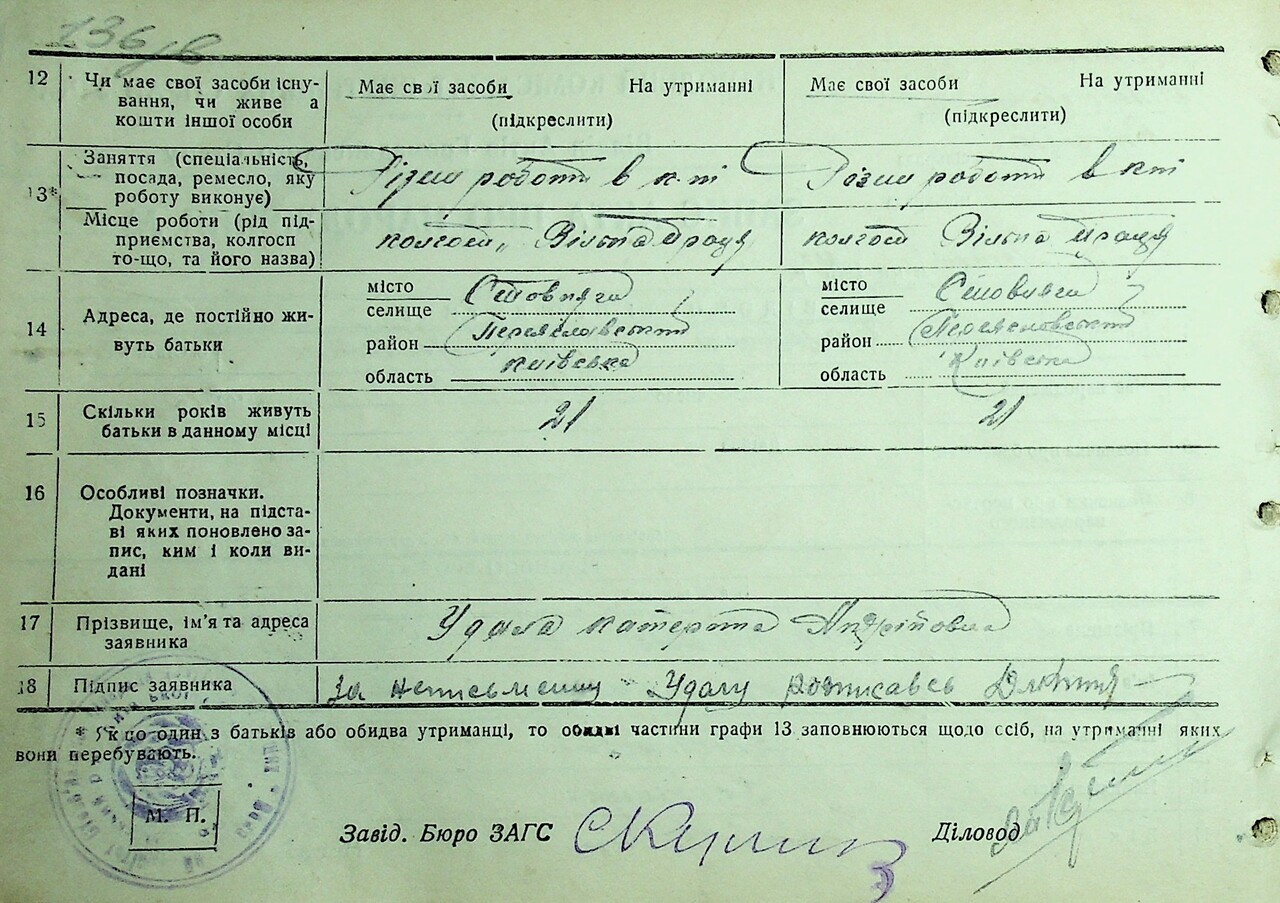 136/в
12 Чи має свої засоби існу-
вання, чи живе а
кошти іншої особи
Має свої засоби На утриманні
(підкреслити)
Має свої засоби На утриманні
(підкреслити)
13* Заняття (спеціальність,
посада, ремесло, яку
роботу виконує)
Різни роботи в к-пі
Різни роботи в кпі
Місце роботи (рід під-
приємства, колгосп
то-що, та його назва)
колгосп „ Вільна праця
колгосп Вільна праця
14 Адреса, де постійно жи-
вуть батьки
місто
селище Стовпяги
район Переяславський
область Київська
місто
селище Стовпяги
район Переяславський
область Київська
15 Скільки років живуть
батьки в данному місці
21
21
16 Особливі позначки.
Документи, на підста-
ві яких поновлено за-
пис, ким і коли ви-
дані
17 Прізвище, ім'я та адреса
заявника
Удала Катерина Андрійовна
18 Підпис заявника
За неписьменну Удалу розписавсь
* Як що один з батьків або обидва утриманці, то обидві частини графи 13 заповнюються щодо ссіб, на утриманні яких
вони перебувають.
М. П.
Завід. Бюро ЗАГС
Діловод